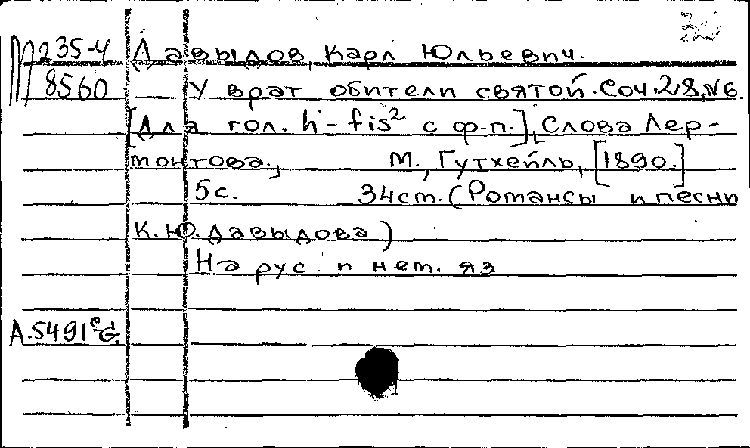 М 235-4 Давыдов, Карл Юльевич.
8560 У врат обители святой. Соч. 28, №6.
[Для гол. h-fis² с ф-п.], Слова Лер-
монтова., М., Гутхейль, [1890.]
5с. 34см. (Романсы и песни
К.Ю. Давыдова)
На рус. и нем. яз
A.5491 G.